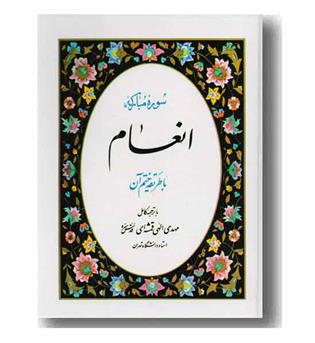 سوره مبارکه
انعام
با طریقه ختم آن
با ترجمه کامل
مهدی الهی قمشه‌ای
استاد دانشگاه تهران